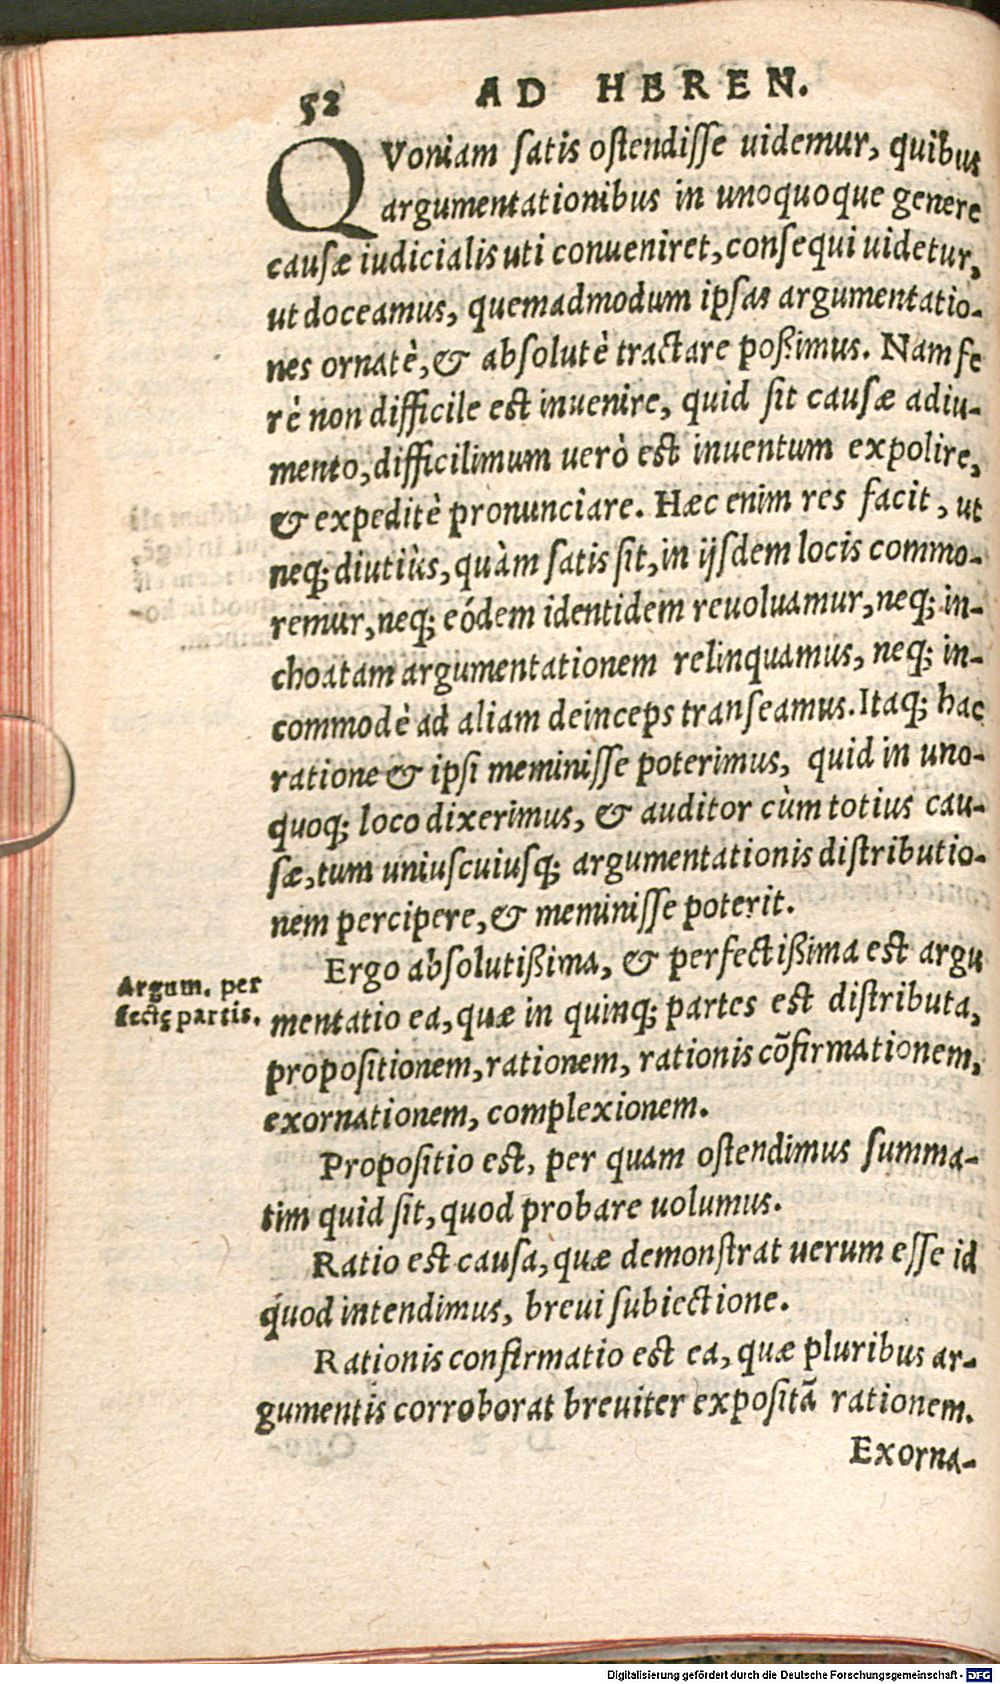 52 AD HEREN.
QVoniam satis ostendisse uidemur, quibus
argumentationibus in unoquoque genere
causæ iudicialis uti conueniret, consequi uidetur,
ut doceamus, quemadmodum ipsas argumentatio-
nes ornatè, & absolutè tractare poßimus. Nam fe
rè non difficile est inuenire, quid sit causæ adiu-
mento, difficilimum uerò est inuentum expolire,
& expeditè pronunciare. Hæc enim res facit, ut
neq; diutiùs, quàm satis sit, in ijsdem locis commo-
remur, neq; eódem identidem reuoluamur, neq; in-
choatam argumentationem relinquamus, neq; in-
commodè ad aliam deinceps transeamus. Itaq; hac
ratione & ipsi meminisse poterimus, quid in uno-
quoq; loco dixerimus, & auditor cùm totius cau-
sæ, tum uniuscuiusq; argumentationis distributio-
nem percipere, & meminisse poterit.
Ergo absolutißima, & perfectißima est argu
mentatio ea, quæ in quinq; partes est distributa,
propositionem, rationem, rationis cõfirmationem,
exornationem, complexionem.
Argum. per
fectę partis.
Propositio est, per quam ostendimus summa-
tim quid sit, quod probare uolumus.
Ratio est causa, quæ demonstrat uerum esse id
quod intendimus, breui subiectione.
Rationis confirmatio est ea, quæ pluribus ar-
gumentis corroborat breuiter expositã rationem.
Exorna-
Digitalisierung gefördert durch die Deutsche Forschungsgemeinschaft - DFG